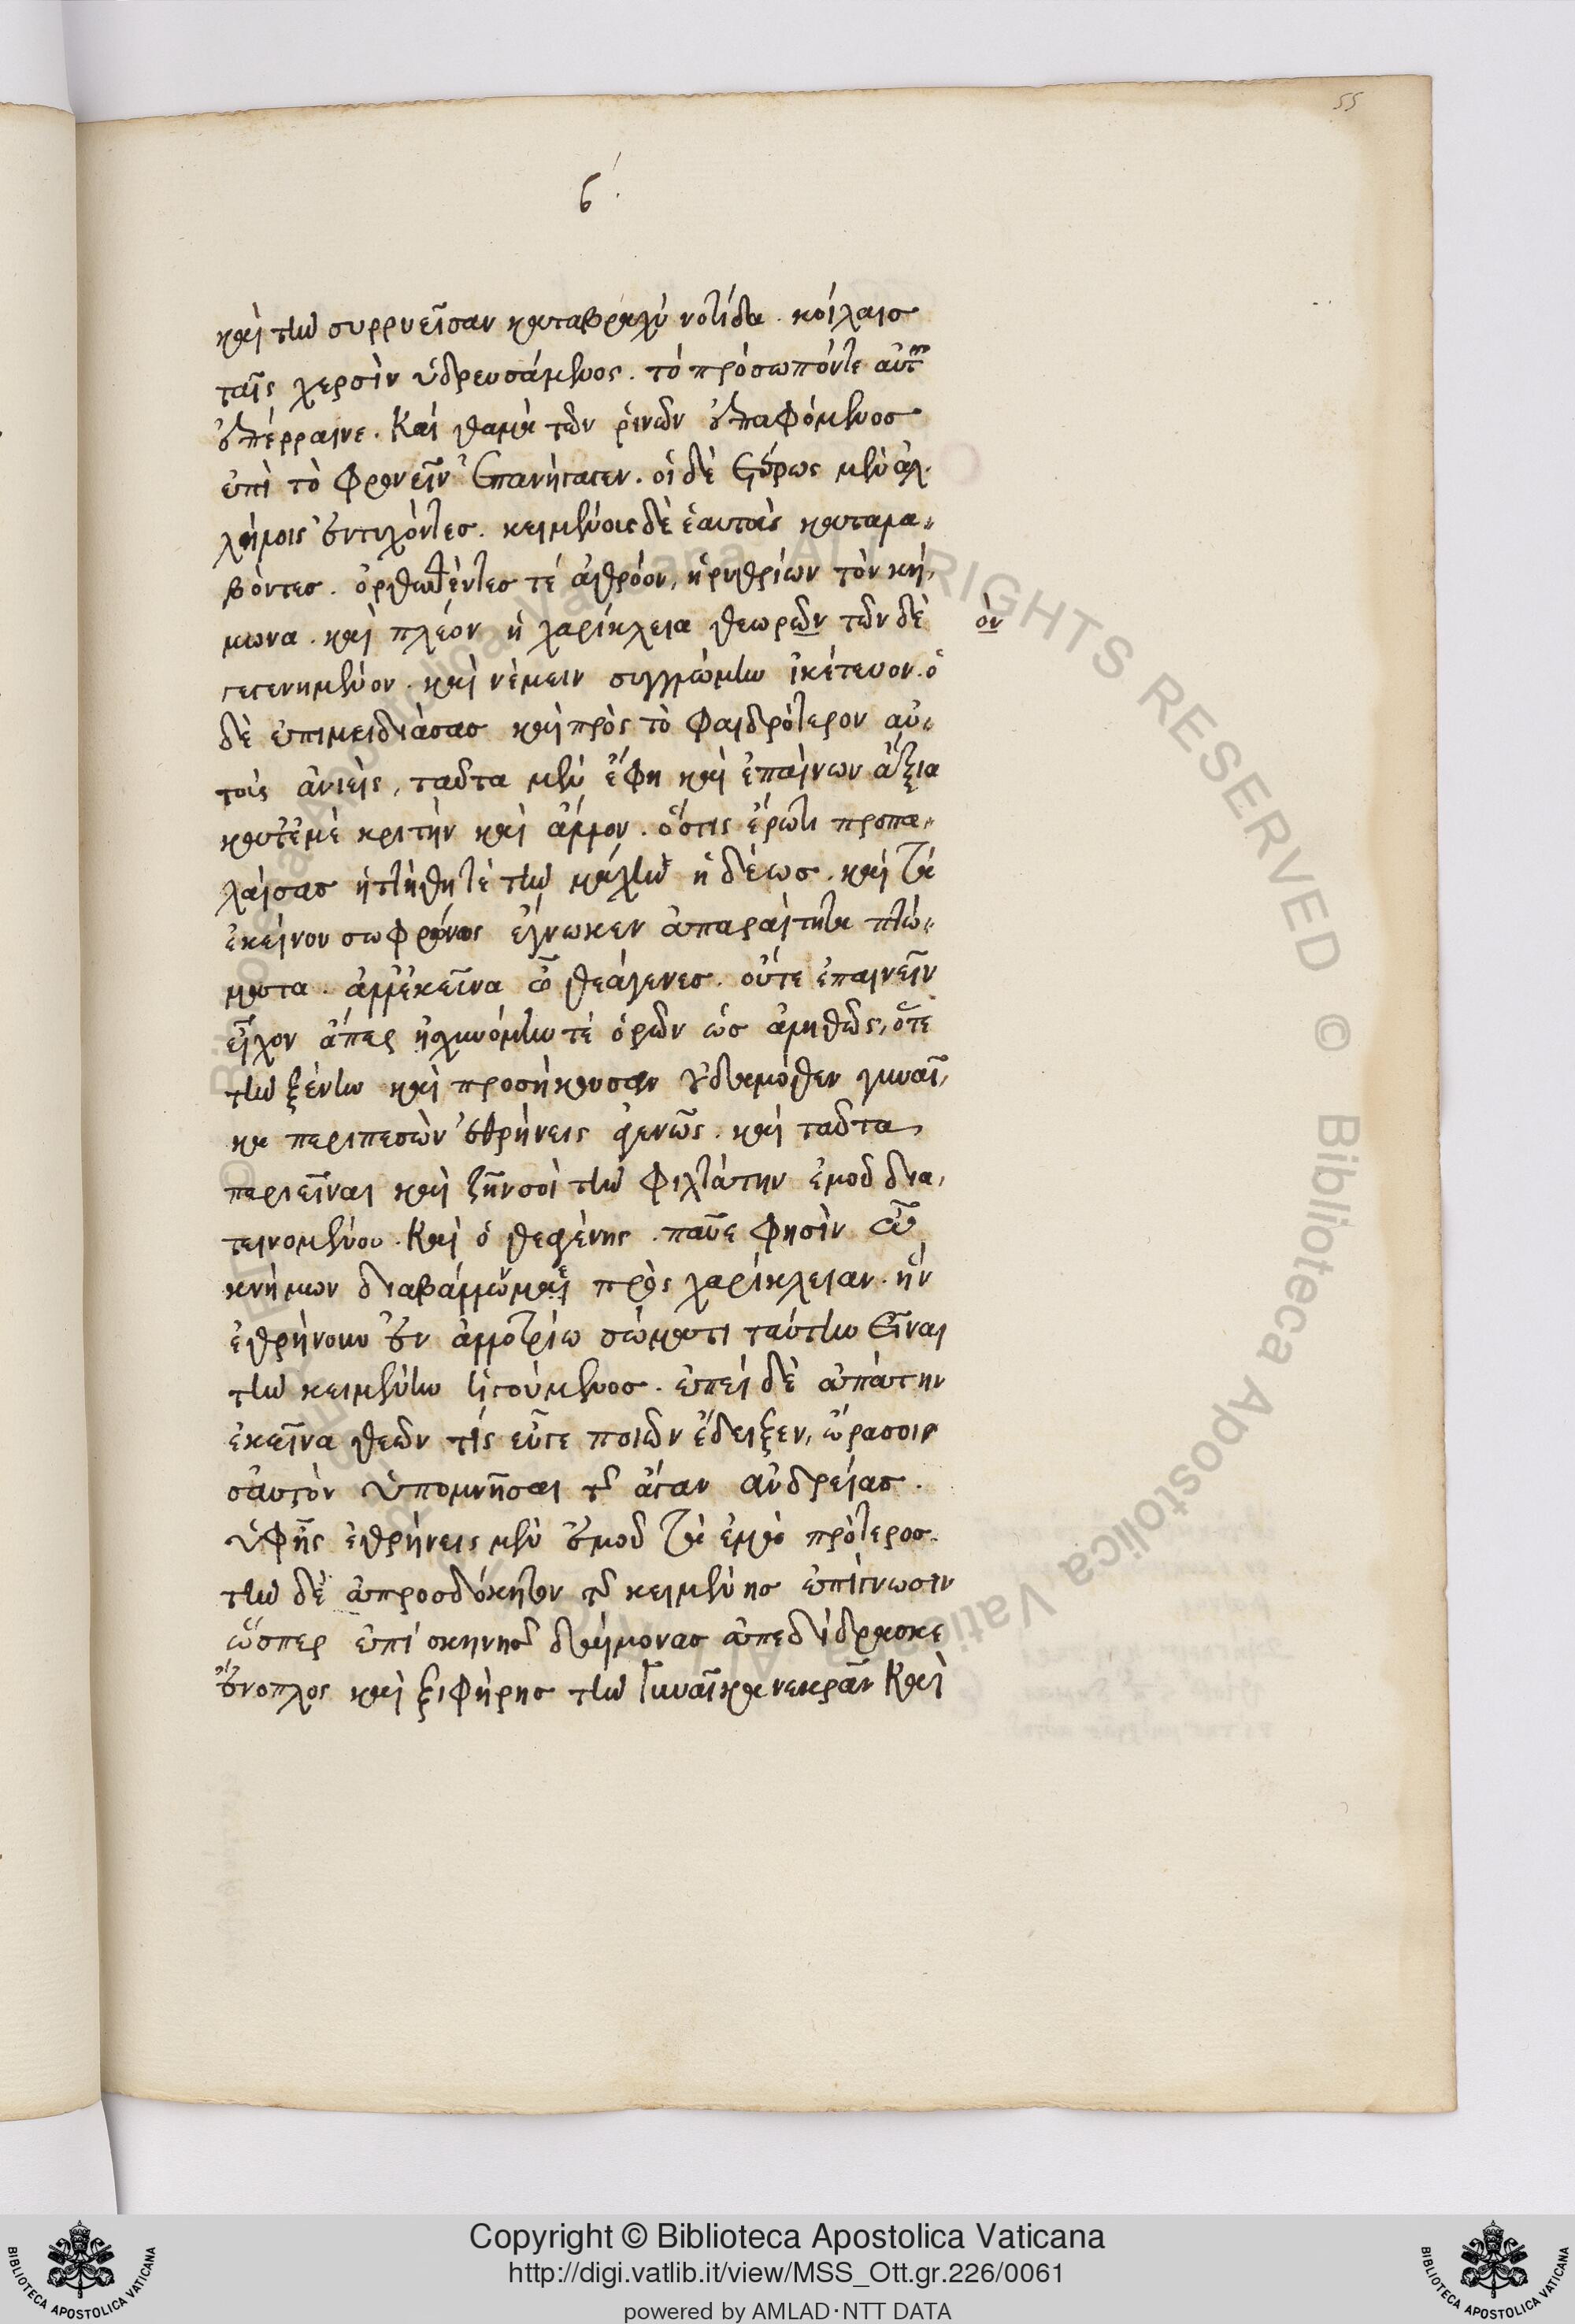 55
β´.
καὶ τὴν συρρυεῖσαν καταβραχὺ νοτίδα. κοίλαις
ταῖς χερσὶν ὑδρευσάμενος. τὸ πρόσωπόντε αὐτῶν
ὑπέρραινε. Καὶ θαμὰ τῶν ῥινῶν ὑπαφόμενος
ἐπὶ τὸ φρονεῖν ἐπανήγαγεν. οἱ δὲ ἑτέρως μὲν ἀλ-
λήλοις ἐντυχόντες. κειμένους δὲ ἑαυτοὺς καταλα-
βόντες. ὀρθωθέντες τέ ἀθρόον, ἠρυθρίων τὸν κνή-
μωνα. καὶ πλέον ἡ χαρίκλεια θεωρῶν τῶν δὲ ὸν
γεγενημένον. καὶ νέμειν συγγνώμην ἱκέτευον. ὁ
δὲ ἐπιμειδιάσας καὶ πρὸς τὸ φαιδρότερον αὐ-
τοὺς ἀνιεὶς, ταῦτα μὲν ἔφη καὶ ἐπαίνων ἄξια
κατ' ἐμὲ κριτὴν καὶ ἄλλον. ὅστις ἔρωτι προπα-
λαίσας ἡττήθητε τὴν μάχην ἡδέως. καὶ τὰ
ἐκείνου σωφρόνως ἔγνωκεν ἀπαραίτητα πτώ-
ματα. ἀλλ' ἐκεῖνα ὦ θεάγενες. οὔτε ἐπαινεῖν
εἶχον ἅπερ ἠσχυνόμην τὲ ὁρῶν ὡς ἀληθῶς, ὅτε
τὴν ξένην καὶ προσήκουσαν οὐδαμόθεν γυναῖ-
κα περιπεσὼν ἐθρήνεις ἀγενῶς. καὶ ταῦτα
περιεῖναι καὶ ζῆν σοὶ τὴν φιλτάτην ἐμοῦ δια-
τεινομένου. Καὶ ὁ θεαγένης. παῦε φησὶν ὦ
κνήμων διαβάλλων με πρὸς χαρίκλειαν. ἣν
ἐθρήνουν ἐν ἀλλοτρίω σώματι ταύτην εἶναι
τὴν κειμένην ἡγούμενος. ἐπεὶ δὲ ἀπάτην
ἐκεῖνα θεῶν τίς εὖγε ποιῶν ἔδειξεν, ὥρα σοι
σαυτὸν ὑπομνῆσαι τῆς ἄγαν ἀνδρείας.
ὑφῆς ἐθρήνεις μὲν ἐμοῦ τὰ ἐμὰ πρότερος.
τὴν δὲ ἀπροσδόκητον τῆς κειμένης ἐπίγνωσιν
ὥσπερ ἐπὶ σκηνῆς δαίμονας ἀπεδίδρασκε
ἔνοπλος καὶ ξιφήρης τὴν γυναῖκα νεκρὰν Καὶ
Copyright © Biblioteca Apostolica Vaticana
http://digi.vatlib.it/view/MSS_Ott.gr.226/0061
powered by AMLAD·NTT DATA